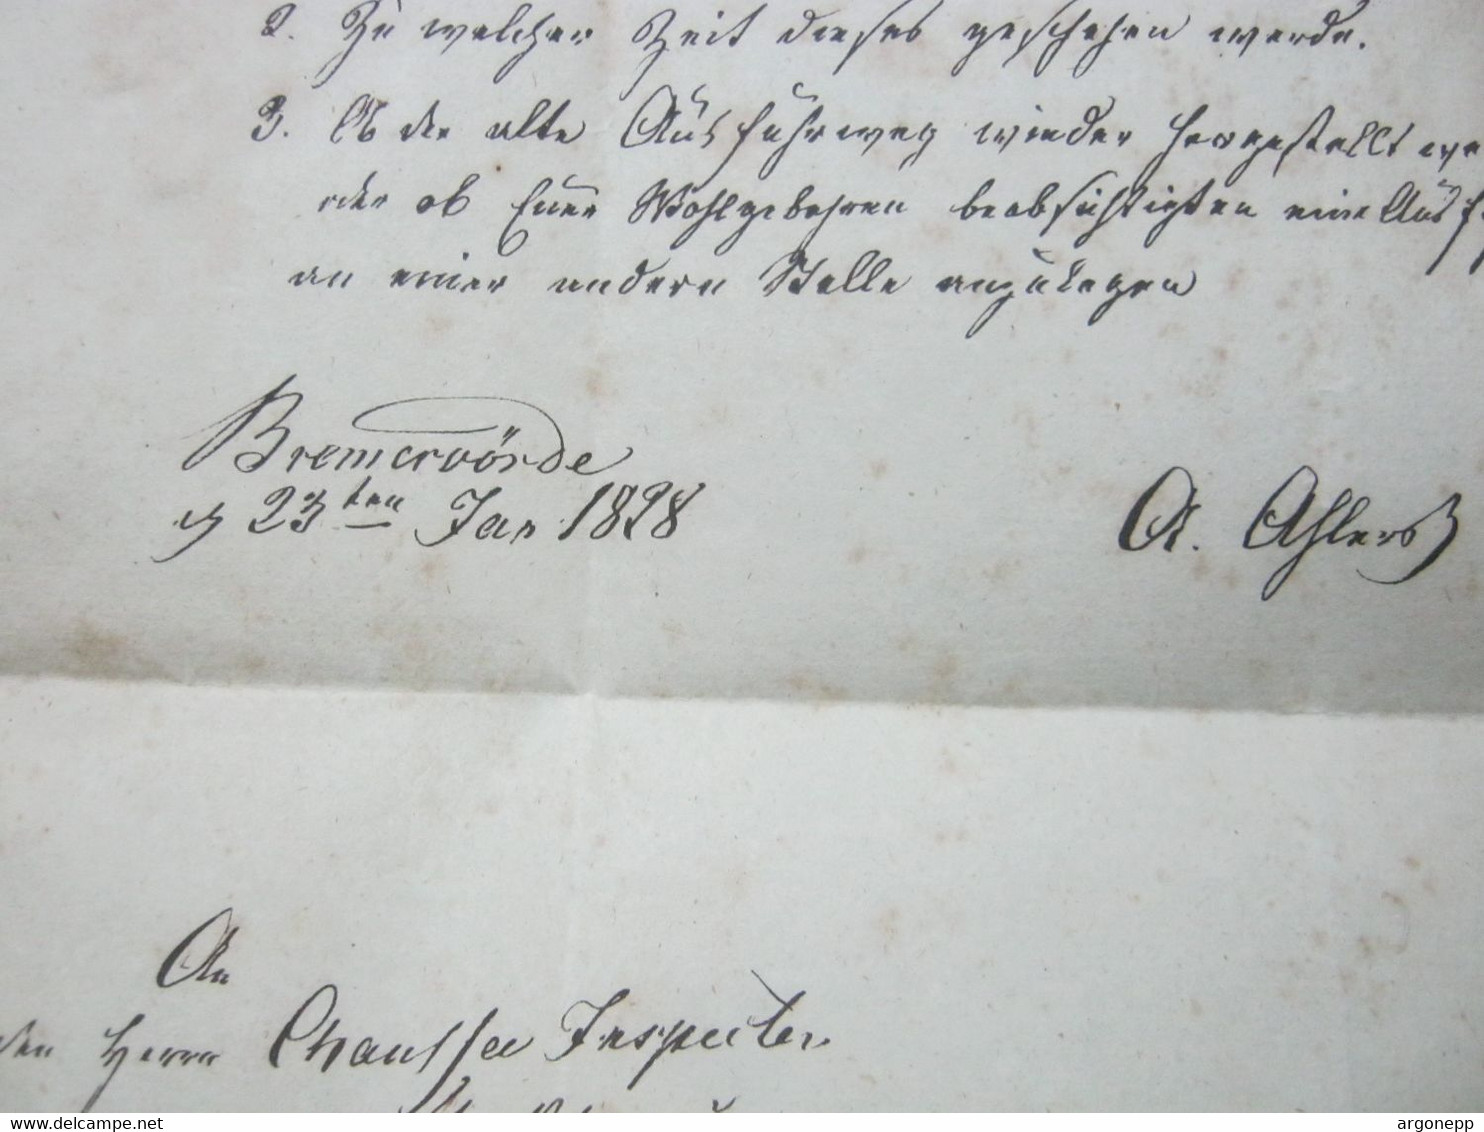 2. Zu welcher Zeit dieses geschehen werde.
3. Ob der alte Ausfuhrweg wieder hergestellt
oder ob Euer Wohlgebohren beabsichtigten eine
an einer andern Stelle anzulegen
Bremervörde
d 23ten Jan 1828
A. Ahlers
An
den Herrn Chaussee Inspector
argonepp
www.delcampe.net